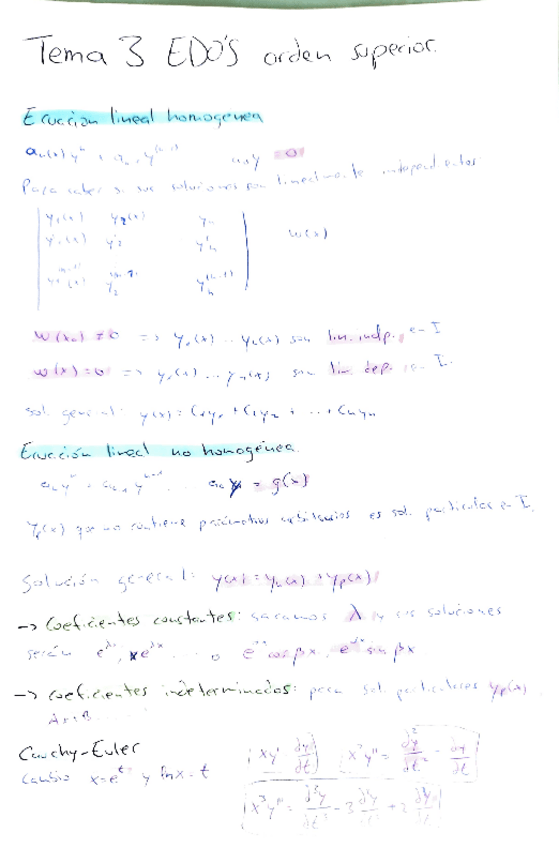 Tema 3 EDO'S orden superior.
Ecuación lineal homogénea
aₙ(x) yⁿ + aₙ₋₁ y⁽ⁿ⁻¹⁾ a₀y = 0
Para saber si sus soluciones son linealmente independientes
y₁(x) y₂(x) yₙ
y'₁(x) y'₂ y'ₙ W(x)
y₁⁽ⁿ⁻¹⁾(x) y₂⁽ⁿ⁻¹⁾ yₙ⁽ⁿ⁻¹⁾
W(x₀) ≠ 0 => y₁(x) .. yₙ(x) son lin. indp. en I
W(x) = 0 => y₁(x) .. yₙ(x) son lin. dep. en I.
sol. general: y(x) = C₁y₁ + C₂y₂ + ... + Cₙyₙ
Ecuación lineal no homogénea.
aₙyⁿ + aₙ₋₁ yⁿ⁻¹ ... a₀ y = g(x)
yₚ(x) que no contiene parámetros arbitrarios es sol. particular en I.
Solución general: y(x) = yₕ(x) + yₚ(x)
-> Coeficientes constantes: sacamos λ y sus soluciones
serán e^λx, xe^λx ... o e^αx cos βx, e^αx sin βx
-> Coeficientes indeterminados: para sol. particulares yₚ(x)
Ax+B ....
Cauchy-Euler
cambio x=eᵗ y lnx = t
xy' ∂y/∂t x²y'' = ∂²y/∂t² - ∂y/∂t
x³y''' = ∂³y/∂t³ - 3 ∂²y/∂t² + 2 ∂y/∂t